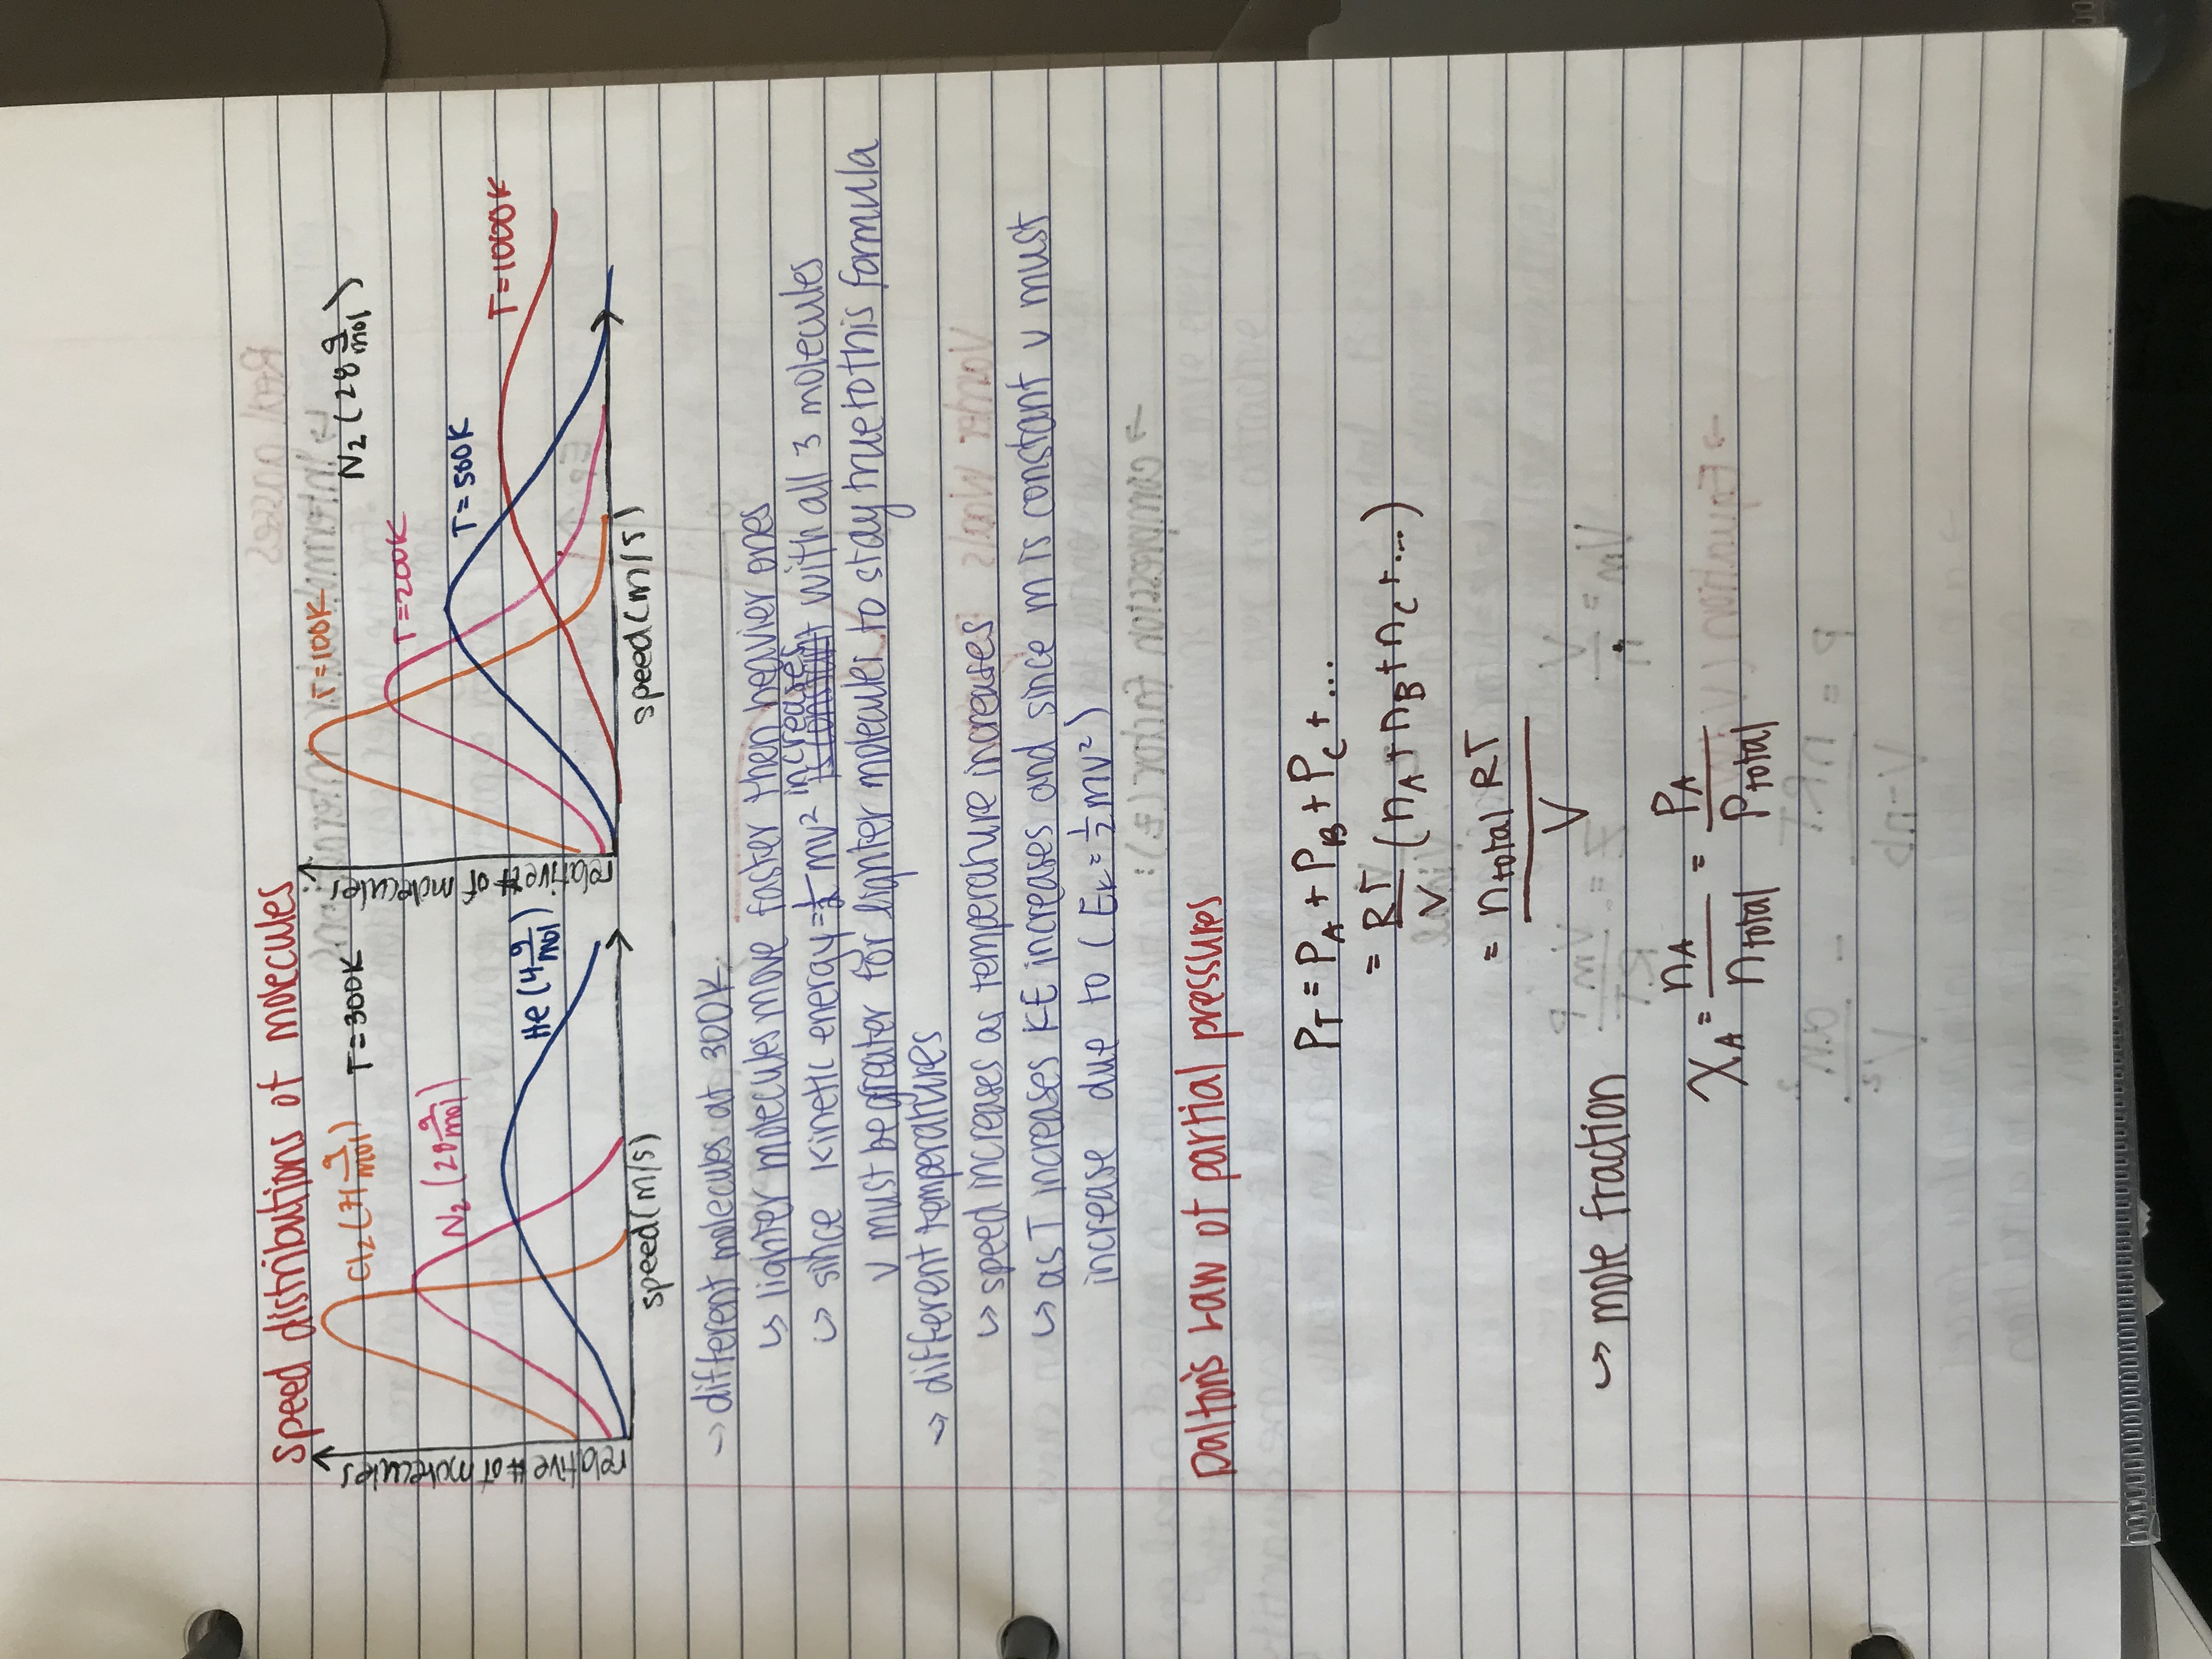 speed distributions of molecules
Cl₂ (71 g/mol)
T=300K
N₂ (28 g/mol)
He (4 g/mol)
relative # of molecules
speed (m/s)
T=100K
N₂ (28 g/mol)
T=200K
T=500K
T=1000K
relative # of molecules
speed (m/s)
→ different molecules at 300K
↳ lighter molecules move faster then heavier ones
↳ since kinetic energy = ½ mv² increases with all 3 molecules
v must be greater for lighter molecules to stay true to this formula
→ different temperatures
↳ speed increases as temperature increases
↳ as T increases KE increases and since m is constant v must
increase due to (Eₖ = ½ mv²)
Dalton's Law of partial pressures
P_T = P_A + P_B + P_C + ....
= RT/V (n_A + n_B + n_C + ....)
= n_total RT / V
↳ mole fraction
χ_A = n_A / n_total = P_A / P_total